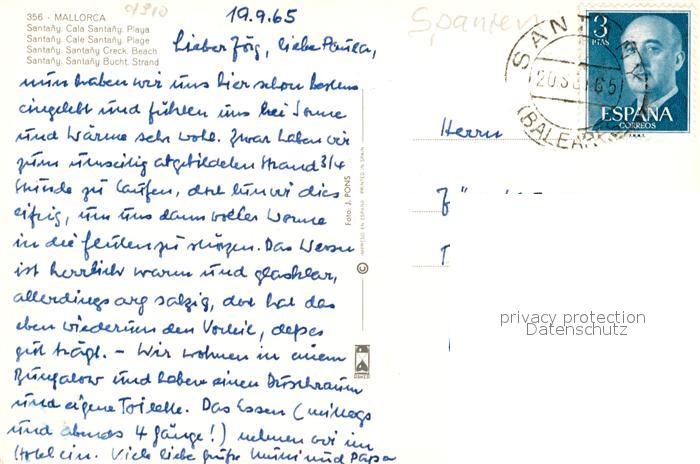 19.9.65
Spanien
356 - MALLORCA
Santañy. Cala Santañy. Playa
Santañy. Cala Santañy. Plage
Santañy. Santañy Creek. Beach
Santañy. Santañy Bucht. Strand
Lieber Jörg, liebe Paula,
nun haben wir uns hier schon bestens
eingelebt und fühlen uns bei Sonne
und Wärme sehr wohl. Zwar haben wir
zum umseitig abgebildeten Strand 3/4
Stunde zu laufen, doch tun wir dies
eifrig, um uns dann voller Wonne
in die Fluten zu stürzen. Das Wasser
ist herrlich warm und glasklar,
allerdings arg salzig, doch hat das
eben wiederum den Vorteil, daß es
gut trägt. - Wir wohnen in einem
Bungalow und haben einen Duschraum
und eigene Toilette. Das Essen (mittags
und abends 4 Gänge!) nehmen wir im
Hotel ein. Viele liebe Grüße Mimi und Papa
Foto: J. PONS
IMPRESO EN ESPAÑA - PRINTED IN SPAIN
©
3
PTAS
ESPAÑA
CORREOS
F.N.M.T.
20 S 65
(BALEARES)
Herrn
privacy protection
Datenschutz